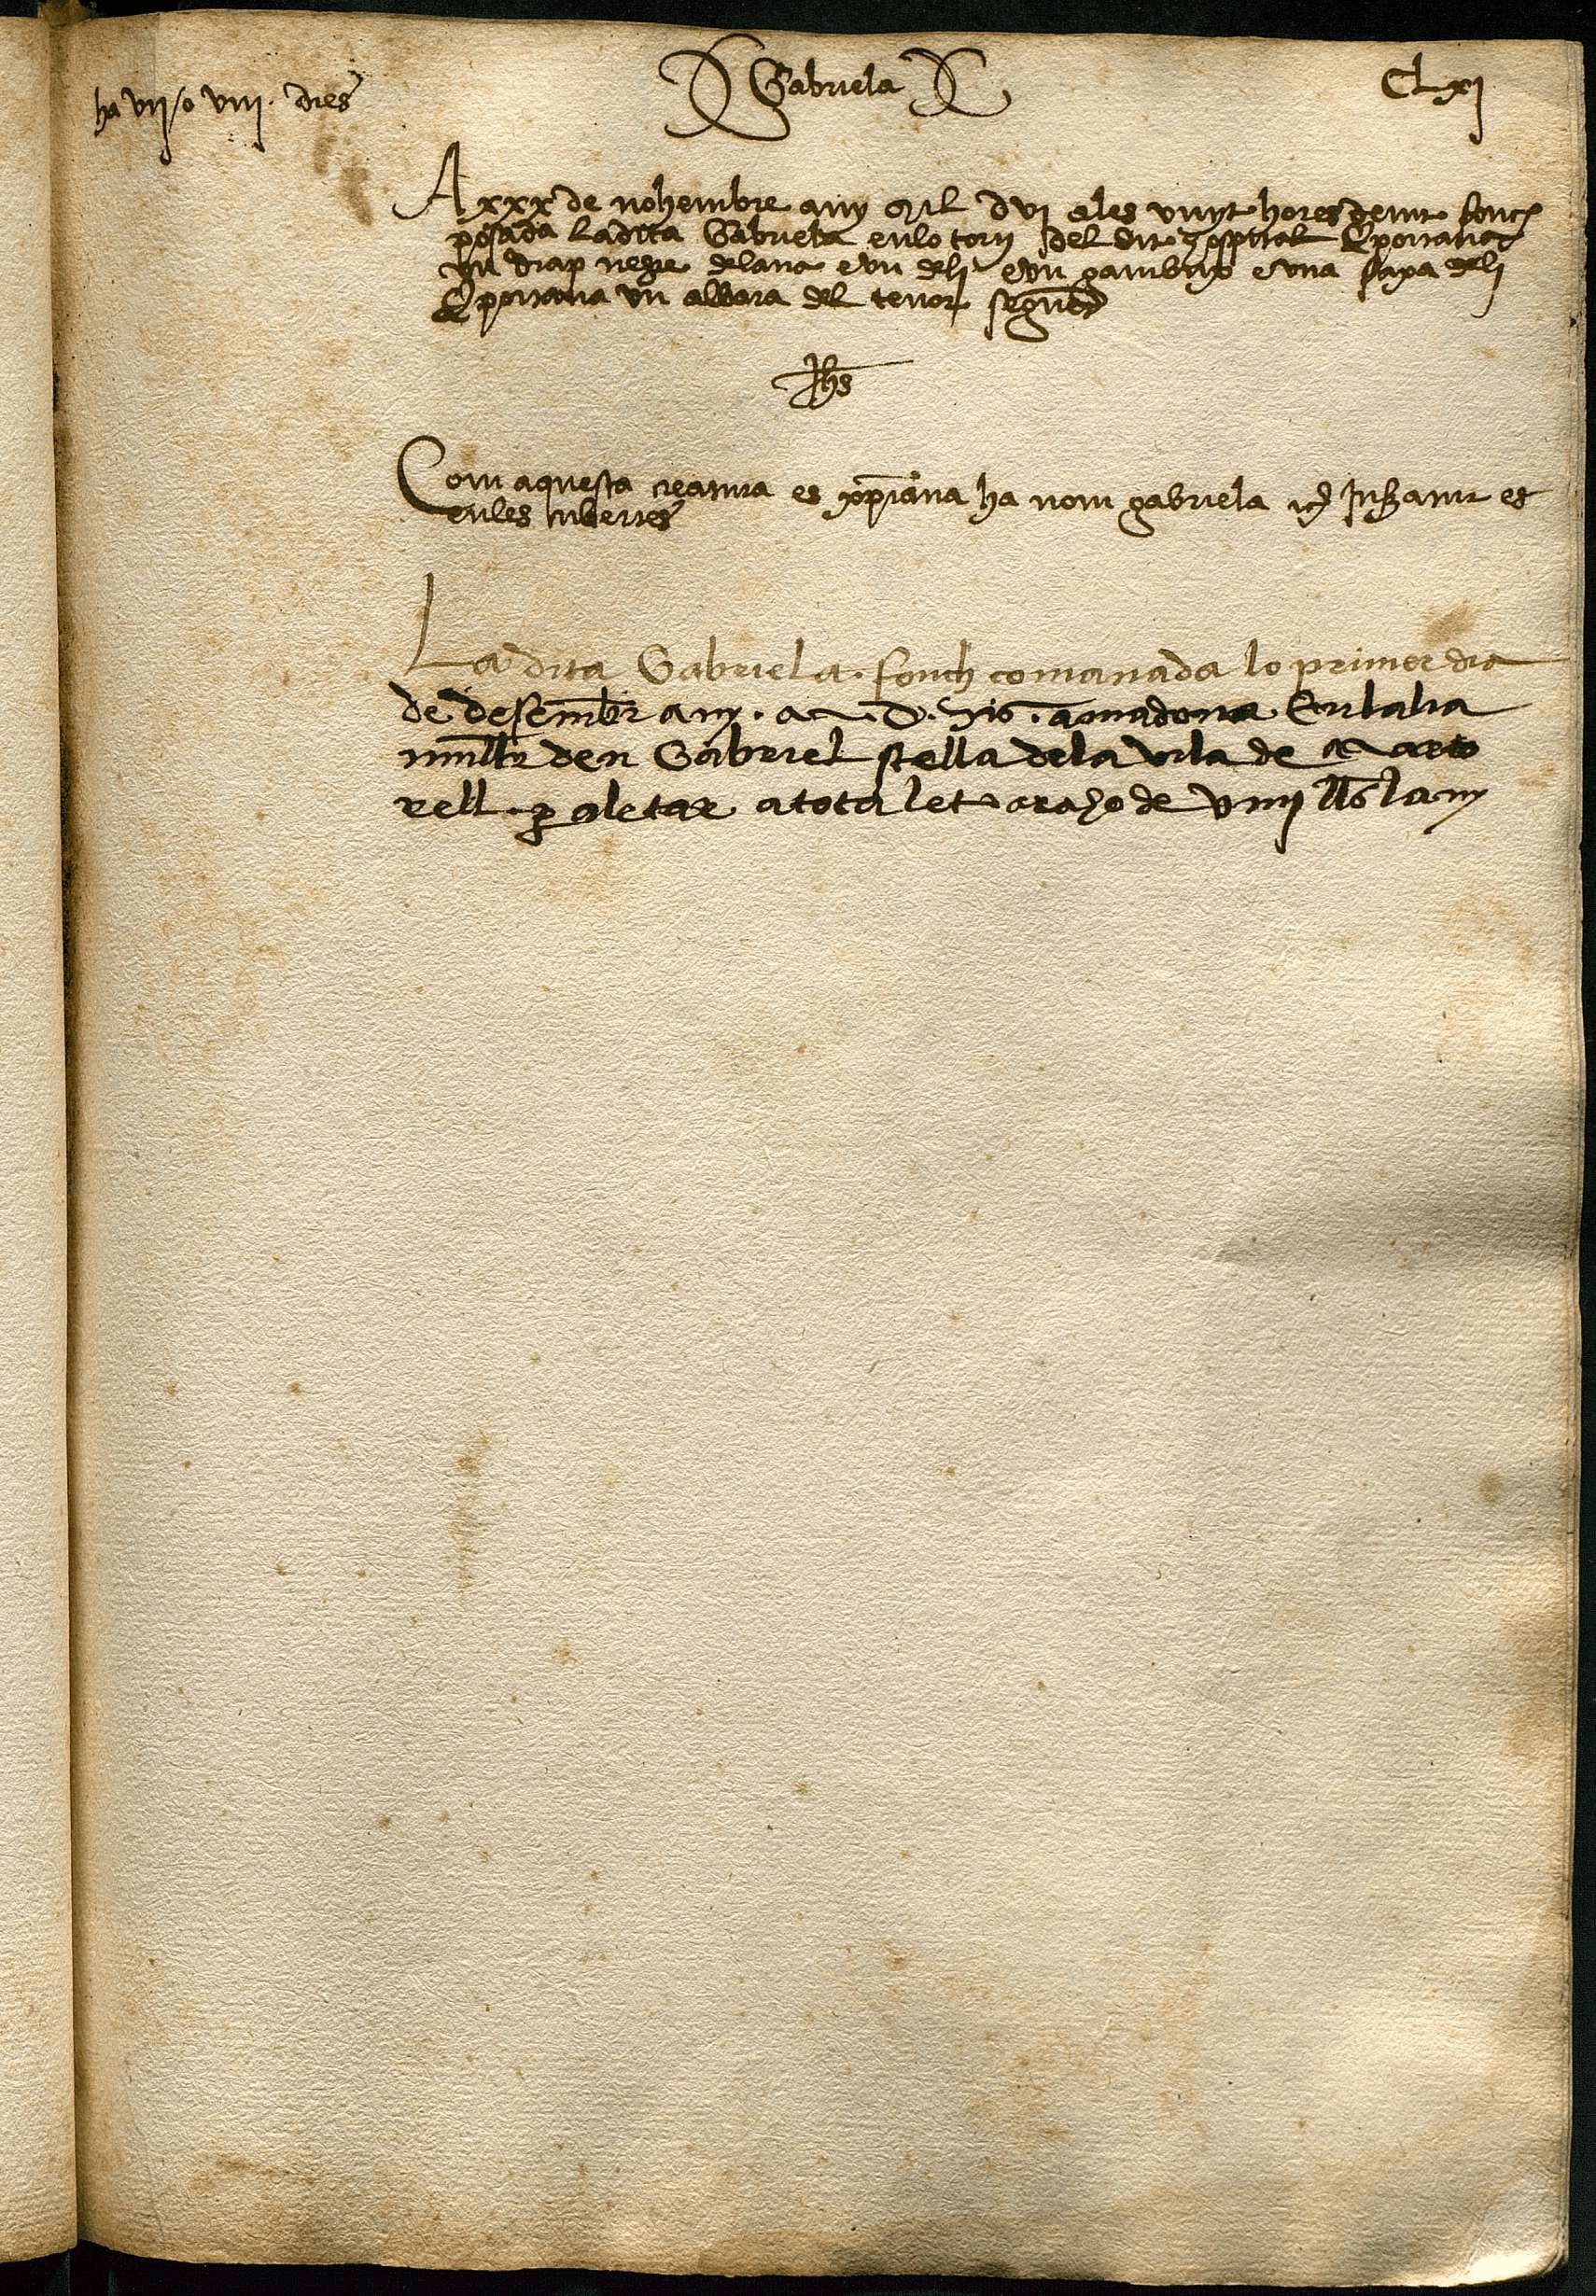 ha vii / o viii · dies
Gabriela
CLxi
A xxx de nohembre any Mil d vi ales vuyt hores denit fonch
posada La dita Gabriela enlo torn del dit hospital E portava
vn drap negre de lana e vn de li e vn gambux e vna faxa de li
E portava vn albara del tenor seguent
Jhs
Com aquesta creatura es xpiana ha nom gabriela
enles cubertes
La dita Gabriela · fonch comanada lo primer dia
de desembr any · M · D · vi · a madona Eulalia
mullr den Gabriel stella dela vila de Marto
rell · p aletar a tota let a raho de viiii ll s lany